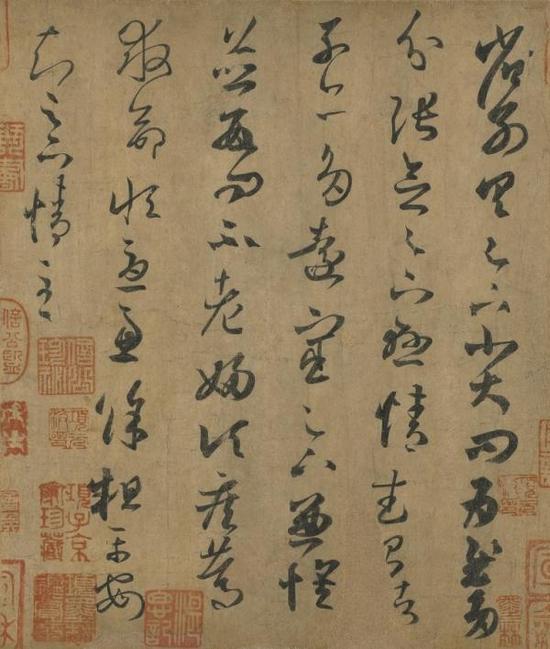 省別具足下小大問為慰多
分張念足下懸情武昌諸
子亦多遠宦足下兼懷
並數問不老婦頃疾篤
救命恒憂慮餘粗平安
知足下情至
項子京
家珍藏